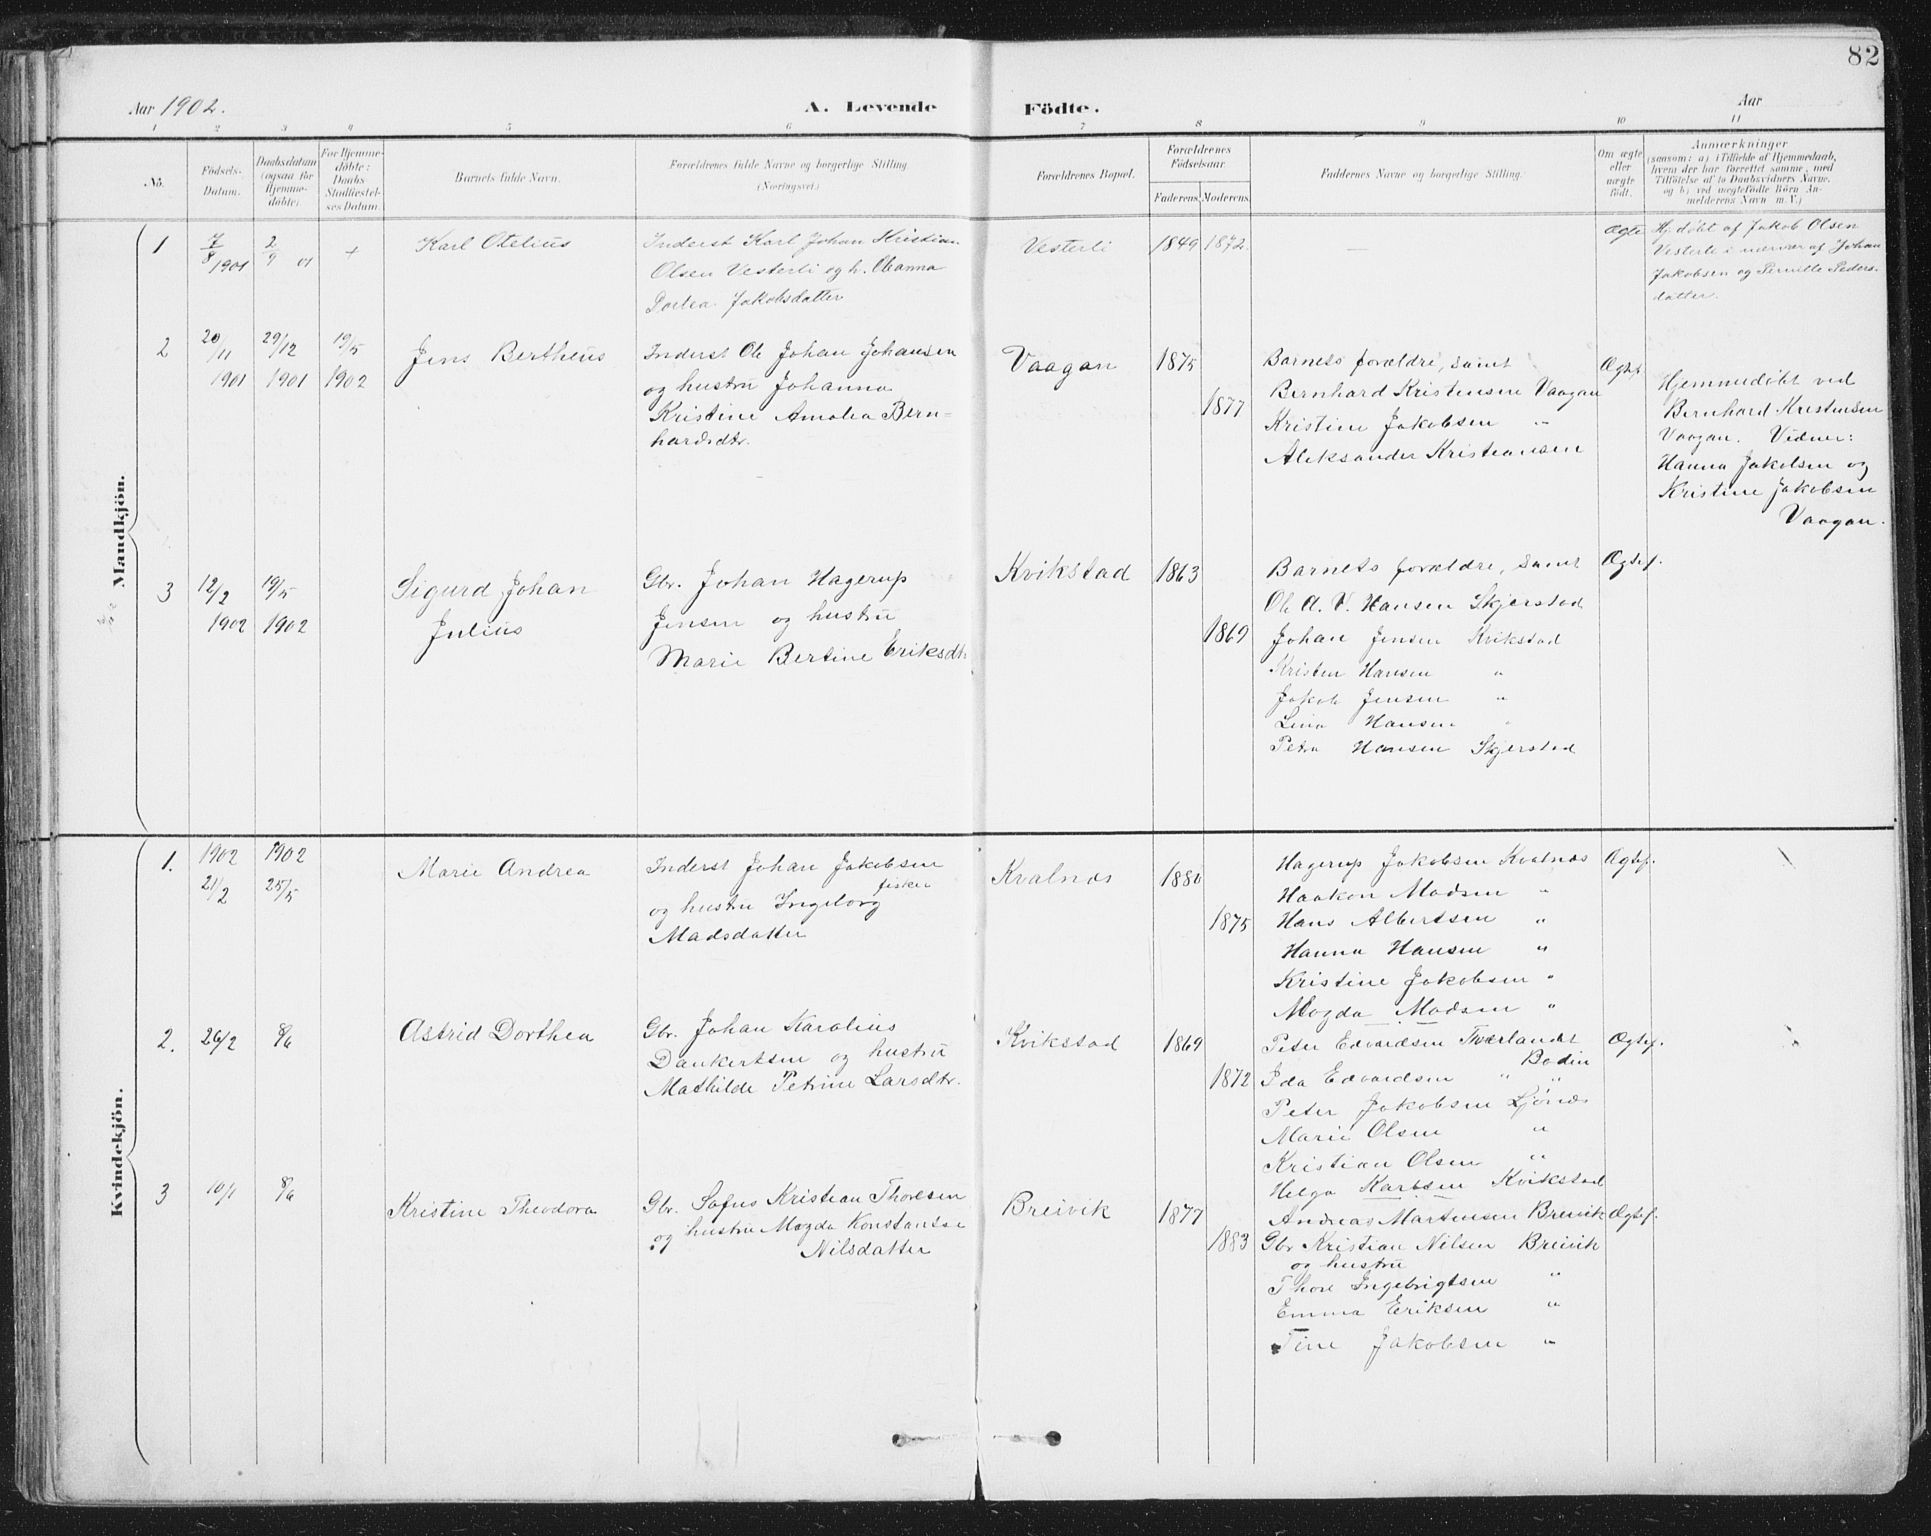 82
Aar 1902.
A. Levende Födte.
Aar
1 2 3 4 5 6 7 8 9 10 11
No.
Födsels-
Datum.
Daabsdatum
(ogsaa for
Hjemme-
döbte).
For Hjemme-
döbte:
Daabs
Stadfæstel-
ses Datum.
Barnets fulde Navn.
Forældrenes fulde Navne og borgerlige Stilling.
(Næringsvei)
Forældrenes Bopæl.
Forældrenes
Födselsaar.
Faderens. Moderens.
Faddernes Navne og borgerlige Stilling.
Om ægte
eller
uægte
födt.
Anmærkninger
(saasom: a) i Tilfælde af Hjemmedaab,
hvem der har forrettet samme, med
Tilföielse af to Daabsvidners Navne.
og b) ved uægtefödte Börn An-
melderens Navn m. V.)
Mandkjön.
1
7/8 1901
2/9 01
+
Karl Otelius
Inderst Karl Johan Kristian
Olsen Vesterli og h. Oleanna
Dortea Jakobsdatter
Vesterli
1849 1872.
—
Ægte
Hj. døbt af Jakob Olsen
Vesterli i nærvær af Johan
Jakobsen og Pernille Peders-
datter.
2
20/11
1901
29/12
1901
19/5
1902
Jens Bertheus
Inderst Ole Johan Johansen
og hustru Johanna
Kristine Amalia Bern-
hardsdtr.
Vaagan
1875
1877
Barnets forældre, samt
Bernhard Kristensen Vaagan
Kristine Jakobsen "
Aleksander Kristiansen
Ægtef.
Hjemmedøbt ved
Bernhard Kristensen
Vaagan. Vidner:
Hanna Jakobsen og
Kristine Jakobsen
Vaagan.
3
12/2
1902
19/5
1902
Sigurd Johan
Julius
Gbr. Johan Hagerup
Jensen og hustru
Marie Bertine Eriksdtr.
Kvikstad
1863
1869
Barnets forældre, samt
Ole A. V. Hansen Skjerstad
Johan Jensen Kvikstad
Kristen Hansen "
Jakob Jensen "
Lina Hansen "
Petra Hansen Skjerstad
Ægtef.
Kvindekjön.
1.
1902
21/2
1902
25/5
Marie Andrea
Inderst Johan Jakobsen
fisker
og hustru Ingeborg
Madsdatter
Kvalnæs
1880
1875
Hagerup Jakobsen Kvalnæs
Haakon Madsen "
Hans Albertsen "
Hanna Hansen "
Kristine Jakobsen "
Magda Madsen "
Ægtef.
2.
26/2
8/6
Astrid Dorthea
Gbr. Johan Karolius
Dankertsen og hustru
Mathilde Petrine Larsdtr.
Kvikstad
1869
1872
Peter Edvardsen Tverlandet
Bodin
Ida Edvardsen " "
Peter Jakobsen Ljønæs
Marie Olsen "
Kristian Olsen "
Helga Karlsen Kvikstad
Ægtef.
3
10/1
8/6
Kristine Theodora
Gbr. Sofus Kristian Thoresen
og hustru Magda Konstanse
Nilsdatter
Breivik
1877
1883
Andreas Martinsen Breivik
Gbr Kristian Nilsen Breivik
og hustru
Thore Ingebrigtsen "
Emma Eriksen "
Tine Jakobsen "
Ægtef.